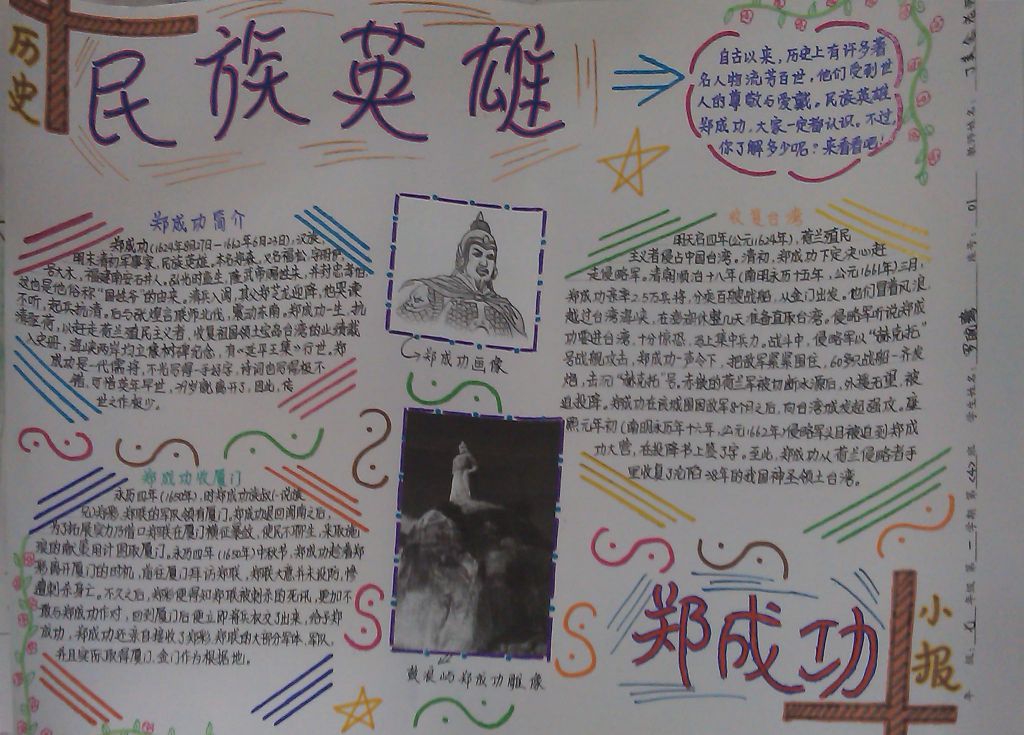 历史
民族英雄
自古以来,历史上有许多著
名人物流芳百世,他们受到世
人的尊敬与爱戴。民族英雄
郑成功,大家一定都认识,不过,
你了解多少呢?来看看吧!
郑成功简介
郑成功(1624年8月27日—1662年6月23日),汉族,
明末清初军事家,民族英雄,本名郑森,又名福松,字明俨,
号大木,福建南安石井人。弘光时监生,隆武帝赐姓朱,并封忠孝伯
这也是他俗称"国姓爷"的由来。清兵入闽,其父郑芝龙迎降,他哭谏
不听,起兵抗清。后与张煌言联师北伐,震动东南。郑成功一生,抗
清驱荷,以赶走荷兰殖民主义者,收复祖国领土宝岛台湾的业绩载
入史册,海峡两岸均立像树碑纪念,有《延平王集》行世。郑
成功是一代儒将,不光写得一手好字,诗词也写得极不
错,可惜英年早世,39岁就离开了,因此,传
世之作极少。
郑成功收厦门
永历四年(1650年),时郑成功族叔(一说族
兄)郑彩、郑联的军队领有厦门,郑成功退回闽南之后,
为了拓展实力乃借口郑联在厦门横征暴敛,使民不聊生,采取施
琅的献策用计图取厦门。永历四年(1650年)中秋节,郑成功趁着郑
彩离开厦门的时机,前往厦门拜访郑联,郑联大意并未设防,惨
遭刺杀身亡。不久之后,郑彩便得知郑联被刺杀的死讯,更加不
敢与郑成功作对,回到厦门后便立即将兵权交了出来,给予郑
成功,郑成功还亲自接收了郑彩、郑联的大部分军体、军队,
并且实际取得厦门、金门作为根据地。
郑成功画像
鼓浪屿郑成功雕像
收复台湾
明天启四年(公元1624年),荷兰殖民
主义者侵占中国台湾。清初,郑成功下定决心赶
走侵略军。清朝顺治十八年(南明永历十五年,公元1661年)三月,
郑成功亲率2.5万兵将,分乘百艘战船,从金门出发。他们冒着风浪,
越过台湾海峡,在澎湖休整几天准备直取台湾。侵略军听说郑成
功要进台湾,十分惊恐,马上集中兵力。战斗中,侵略军以"赫克托"
号战舰攻击,郑成功一声令下,把敌军紧紧围住,60多只战船一齐发
炮,击沉"赫克托"号。赤嵌的荷兰军被切断水源后,外援无望,被
迫投降。郑成功在该城围困敌军8个月之后,向台湾城发起强攻。康
熙元年初(南明永历年十六年,公元1662年)侵略军头目被迫到郑成
功大营,在投降书上签了字。至此,郑成功从荷兰侵略者手
里收复了沦陷38年的我国神圣领土台湾。
郑成功
小报